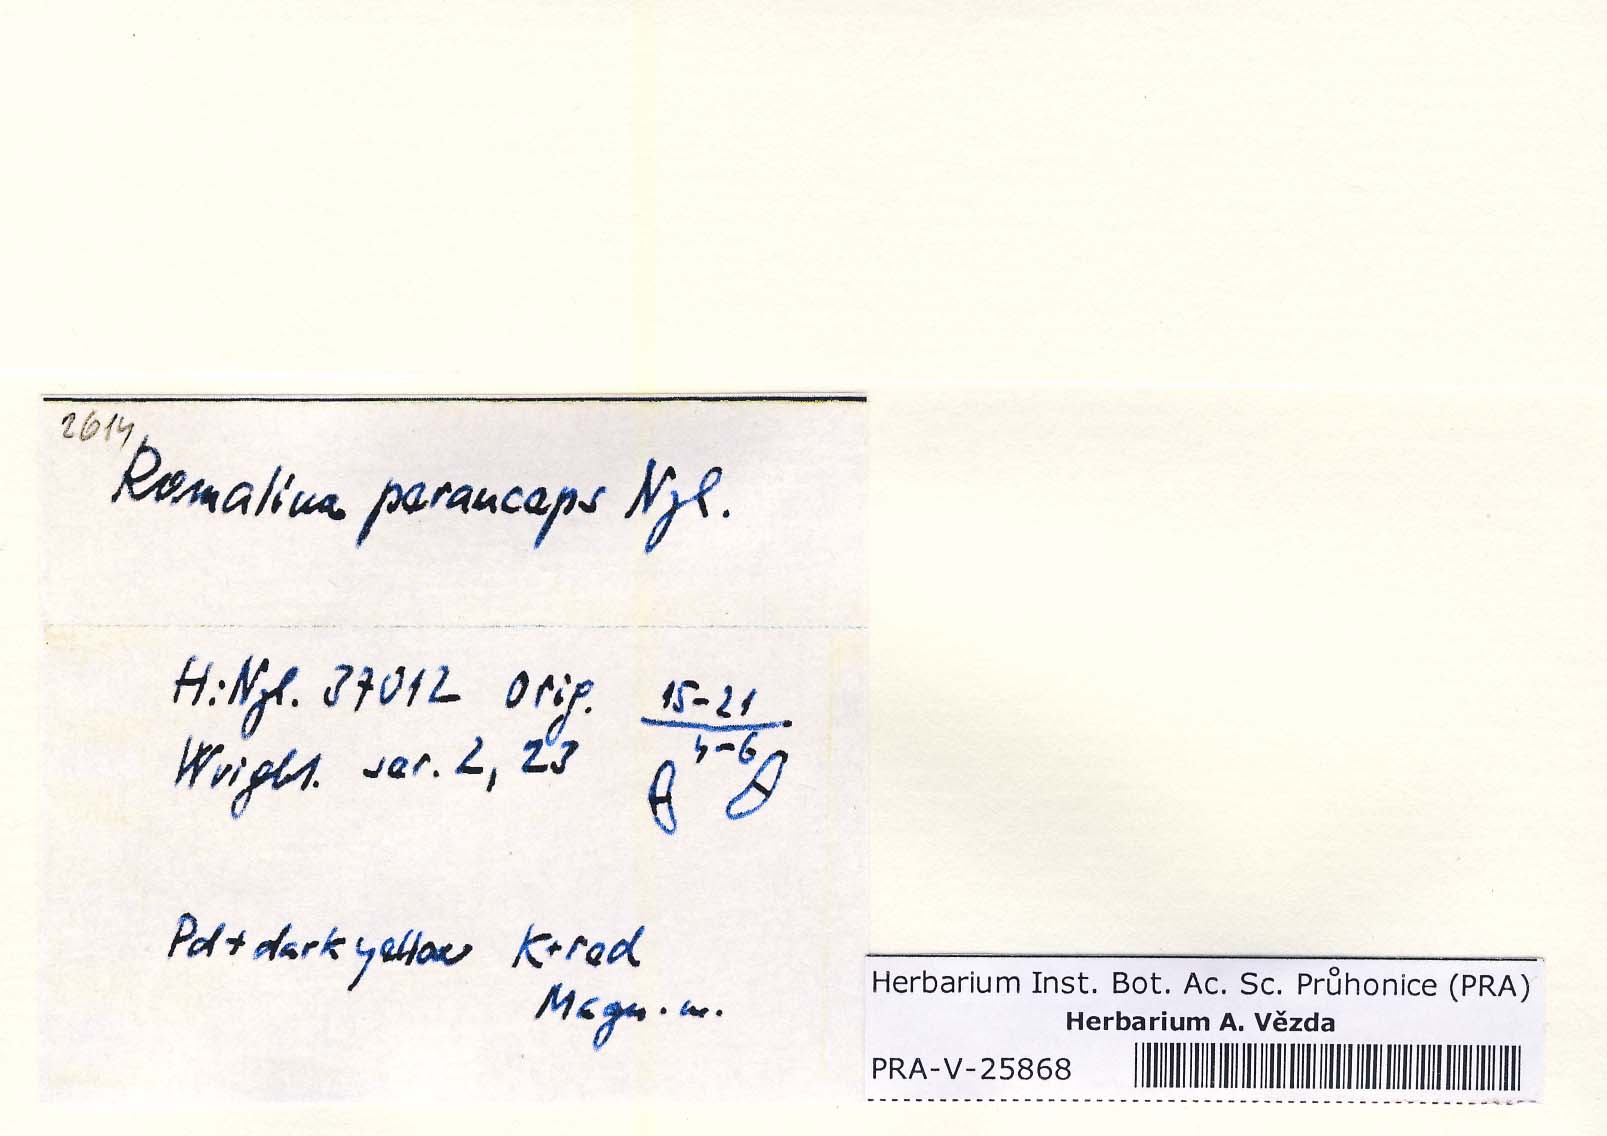 2614
Ramalina peranceps Nyl.
H: Nyl. 37012 Orig. 15-21
Wright. ser. 2, 23 4-6
Pd+ dark yellow K+red
Magn. m.
Herbarium Inst. Bot. Ac. Sc. Průhonice (PRA)
Herbarium A. Vězda
PRA-V-25868